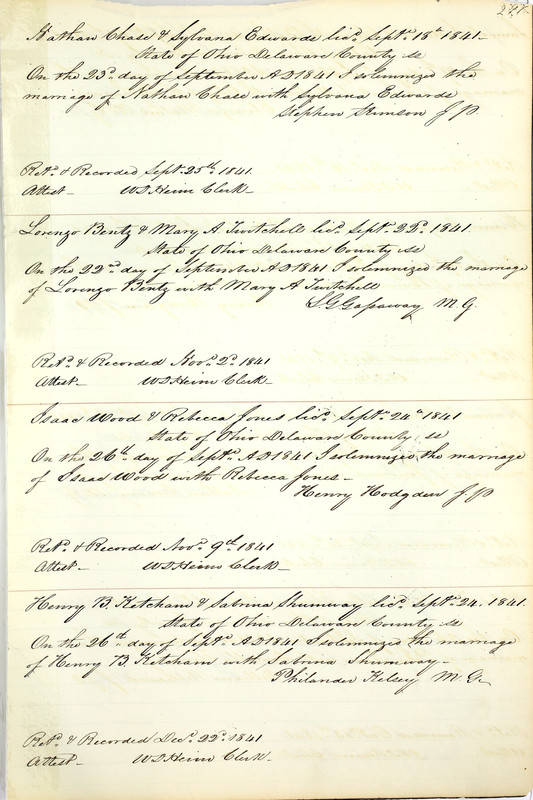 297.
Nathan Chase & Sylvana Edwards licd. Septr. 18th 1841 -
State of Ohio Delaware County ss
On the 23d. day of September AD 1841 I solemnized the
marriage of Nathan Chase with Sylvana Edwards
Stephen Stimson J. P.
Retd. & Recorded Sept. 25th. 1841.
Attest - W D Heim Clerk -
Lorenzo Bentz & Mary A Twitchell licd. Sept. 22d. 1841
State of Ohio Delaware County ss
On the 22d day of September AD 1841 I solemnized the marriage
of Lorenzo Bentz with Mary A Twitchell
S. G. Gassaway M. G.
Retd. & Recorded Novr. 2d. 1841
Attest - W D Heim Clerk -
Isaac Wood & Rebecca Jones licd. Septr. 24th 1841
State of Ohio Delaware County, ss
On the 26th. day of Septr. AD 1841 I solemnized the marriage
of Isaac Wood with Rebecca Jones -
Henry Hodgden J. P
Retd. & Recorded Novr. 9th. 1841
Attest - W D Heim Clerk -
Henry B. Ketcham & Sabrina Shumway licd. Septr. 24. 1841.
State of Ohio Delaware County ss
On the 26th. day of Septr. AD 1841 I solemnized the marriage
of Henry B Ketcham with Sabrina Shumway -
Philander Kelsey M. G.
Retd. & Recorded Decr. 22d. 1841
Attest - W D Heim Clerk -